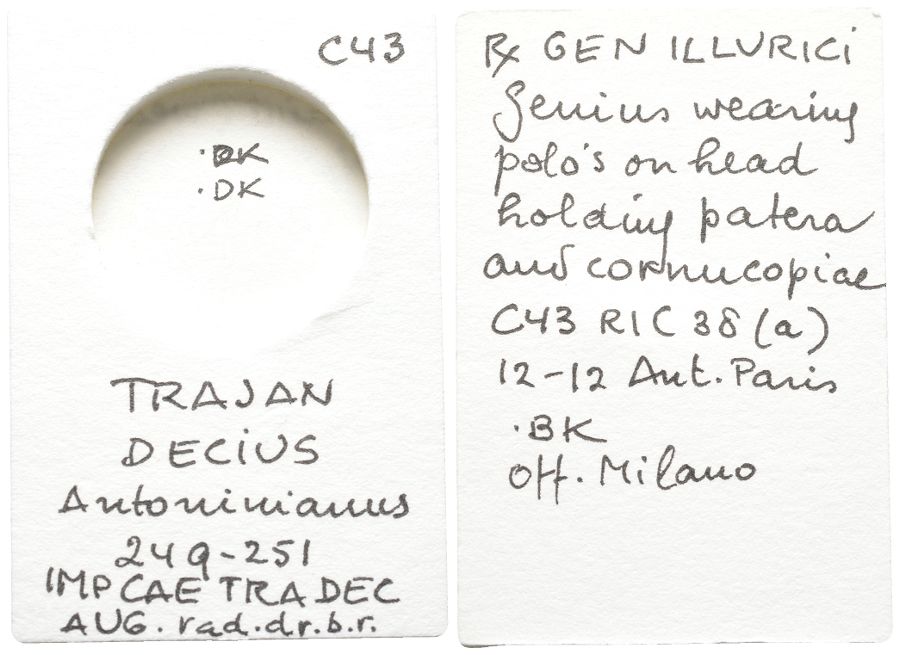 C43
·DK
TRAJAN
DECiUS
Antoninianus
249-251
IMP CAE TRA DEC
AUG. rad.dr.b.r.
Rx GEN ILLURICi
Genius wearing
polo's on head
holding patera
and cornucopiae
C43 RIC 38 (a)
12-12 Ant. Paris
·BK
Off. Milano